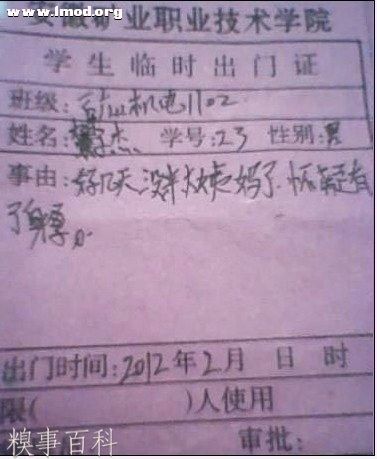 www.lmod.org
安徽矿业职业技术学院
学生临时出门证
班级：矿山机电1102
姓名：杰 学号：23 性别：男
事由：好几天没来大姨妈了、怀疑有
了身孕。
出门时间：2012年2月 日 时
限( )人使用
审批：
糗事百科